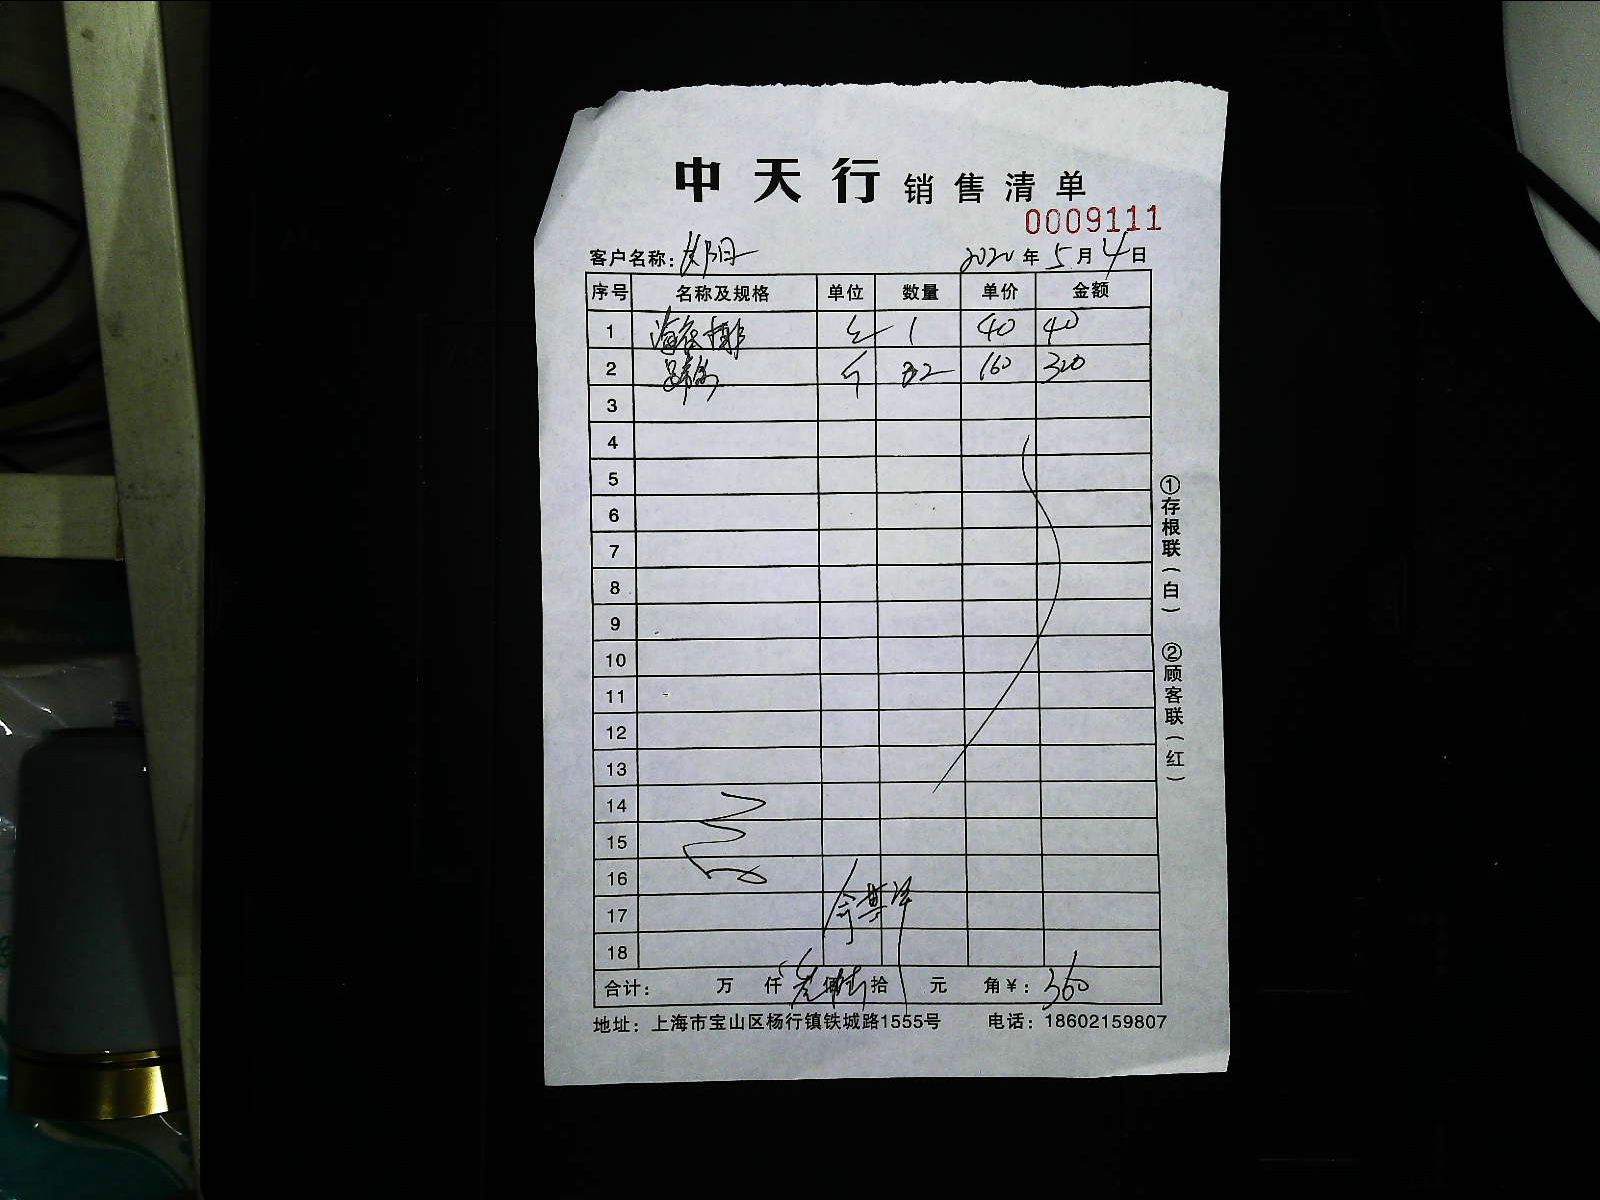 中天行 销售清单
0009111
客户名称: 2020年5月4日
序号 名称及规格 单位 数量 单价 金额
1 1 40 40
2 个 2 160 320
3
4
5
6
7
8
9
10
11
12
13
14
15
16
17
18
合计: 万 仟 叁佰陆拾 元 角¥: 360
地址: 上海市宝山区杨行镇铁城路1555号 电话: 18602159807
①存根联(白) ②顾客联(红)